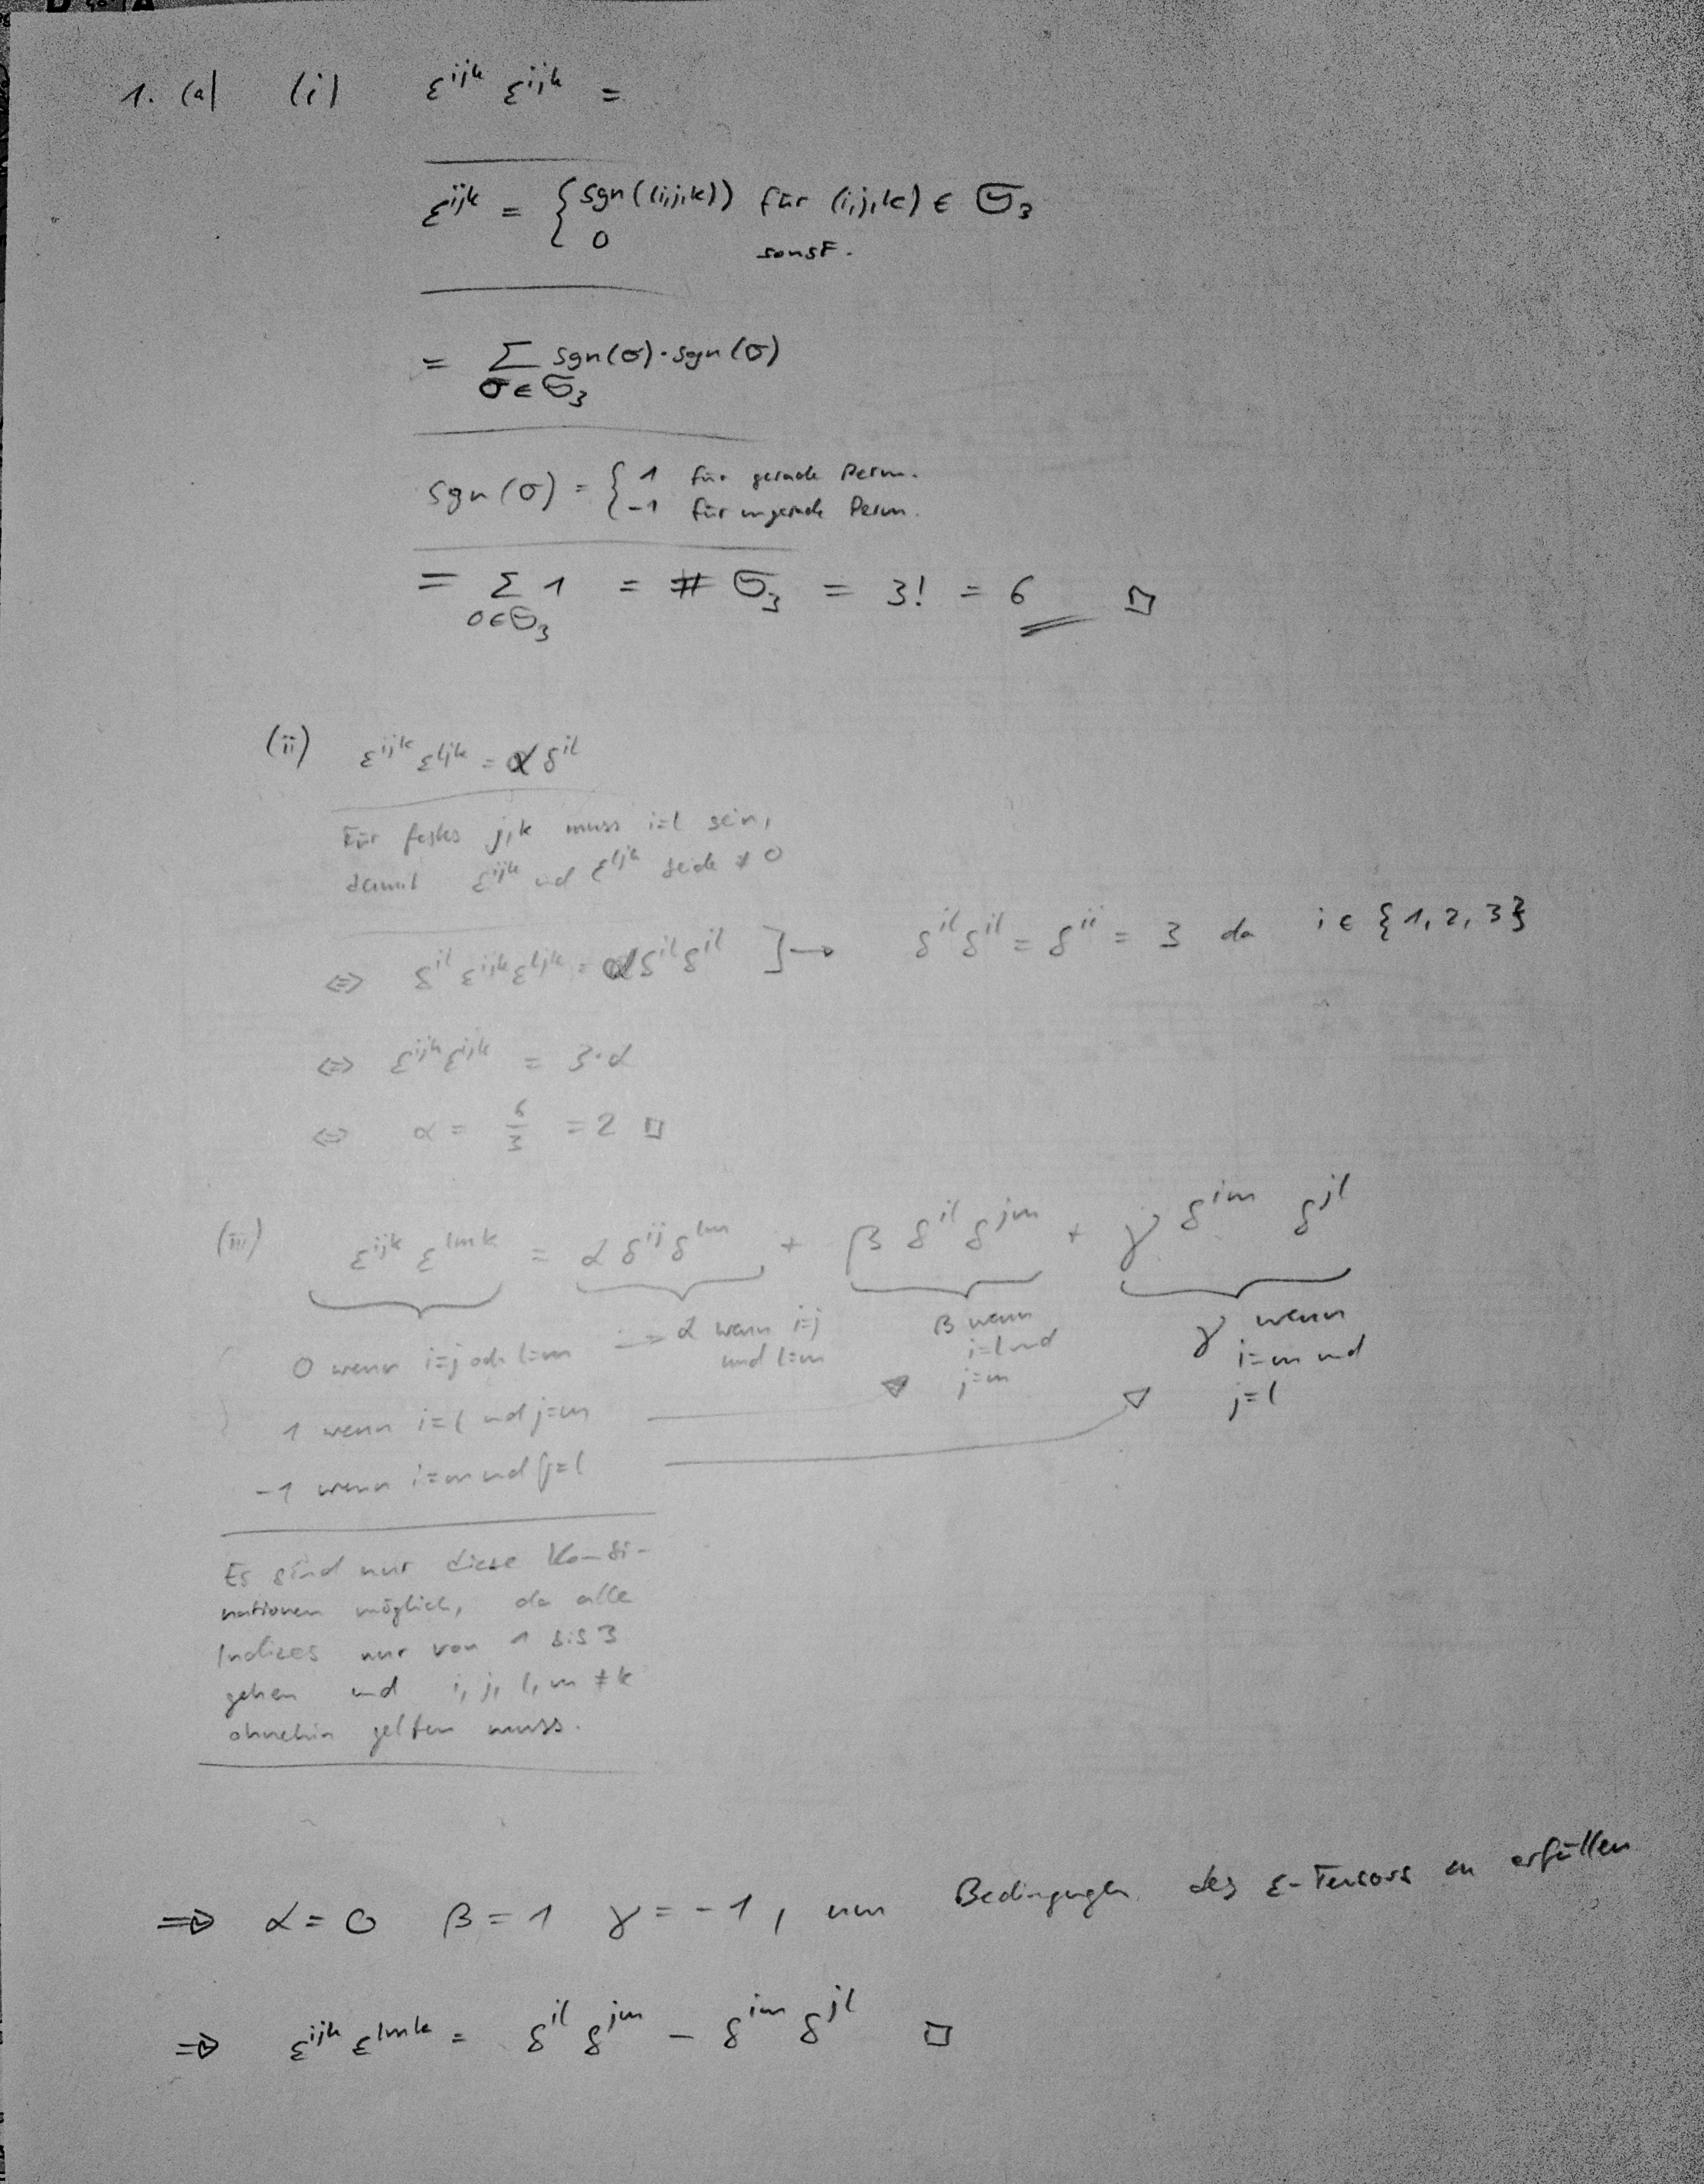 1. (a) (i) ε^{ijk} ε^{ijk} =
ε^{ijk} = { sgn((i,j,k)) für (i,j,k) ∈ 𝔖_3
0 sonst.
= Σ_{σ∈𝔖_3} sgn(σ)·sgn(σ)
sgn(σ) = { 1 für gerade Perm.
-1 für ungerade Perm.
= Σ_{σ∈𝔖_3} 1 = # 𝔖_3 = 3! = 6 □
(ii) ε^{ijk} ε^{ljk} = α δ^{il}
Für festes j,k muss i=l sein,
damit ε^{ijk} und ε^{ljk} beide ≠ 0
⇔ δ^{il} ε^{ijk} ε^{ljk} = α δ^{il} δ^{il} ]→ δ^{il} δ^{il} = δ^{ii} = 3 da i ∈ {1, 2, 3}
⇔ ε^{ijk} ε^{ijk} = 3·α
⇔ α = 6/3 = 2 □
(iii) ε^{ijk} ε^{lmk} = α δ^{ij} δ^{lm} + β δ^{il} δ^{jm} + γ δ^{im} δ^{jl}
0 wenn i=j oder l=m → α wenn i=j und l=m β wenn i=l und j=m γ wenn i=m und j=l
1 wenn i=l und j=m
-1 wenn i=m und j=l
Es sind nur diese Kombi-
nationen möglich, da alle
Indizes nur von 1 bis 3
gehen und i, j, l, m ≠ k
ohnehin gelten muss.
⇒ α = 0 β = 1 γ = -1, um Bedingungen des ε-Tensors zu erfüllen
⇒ ε^{ijk} ε^{lmk} = δ^{il} δ^{jm} - δ^{im} δ^{jl} □